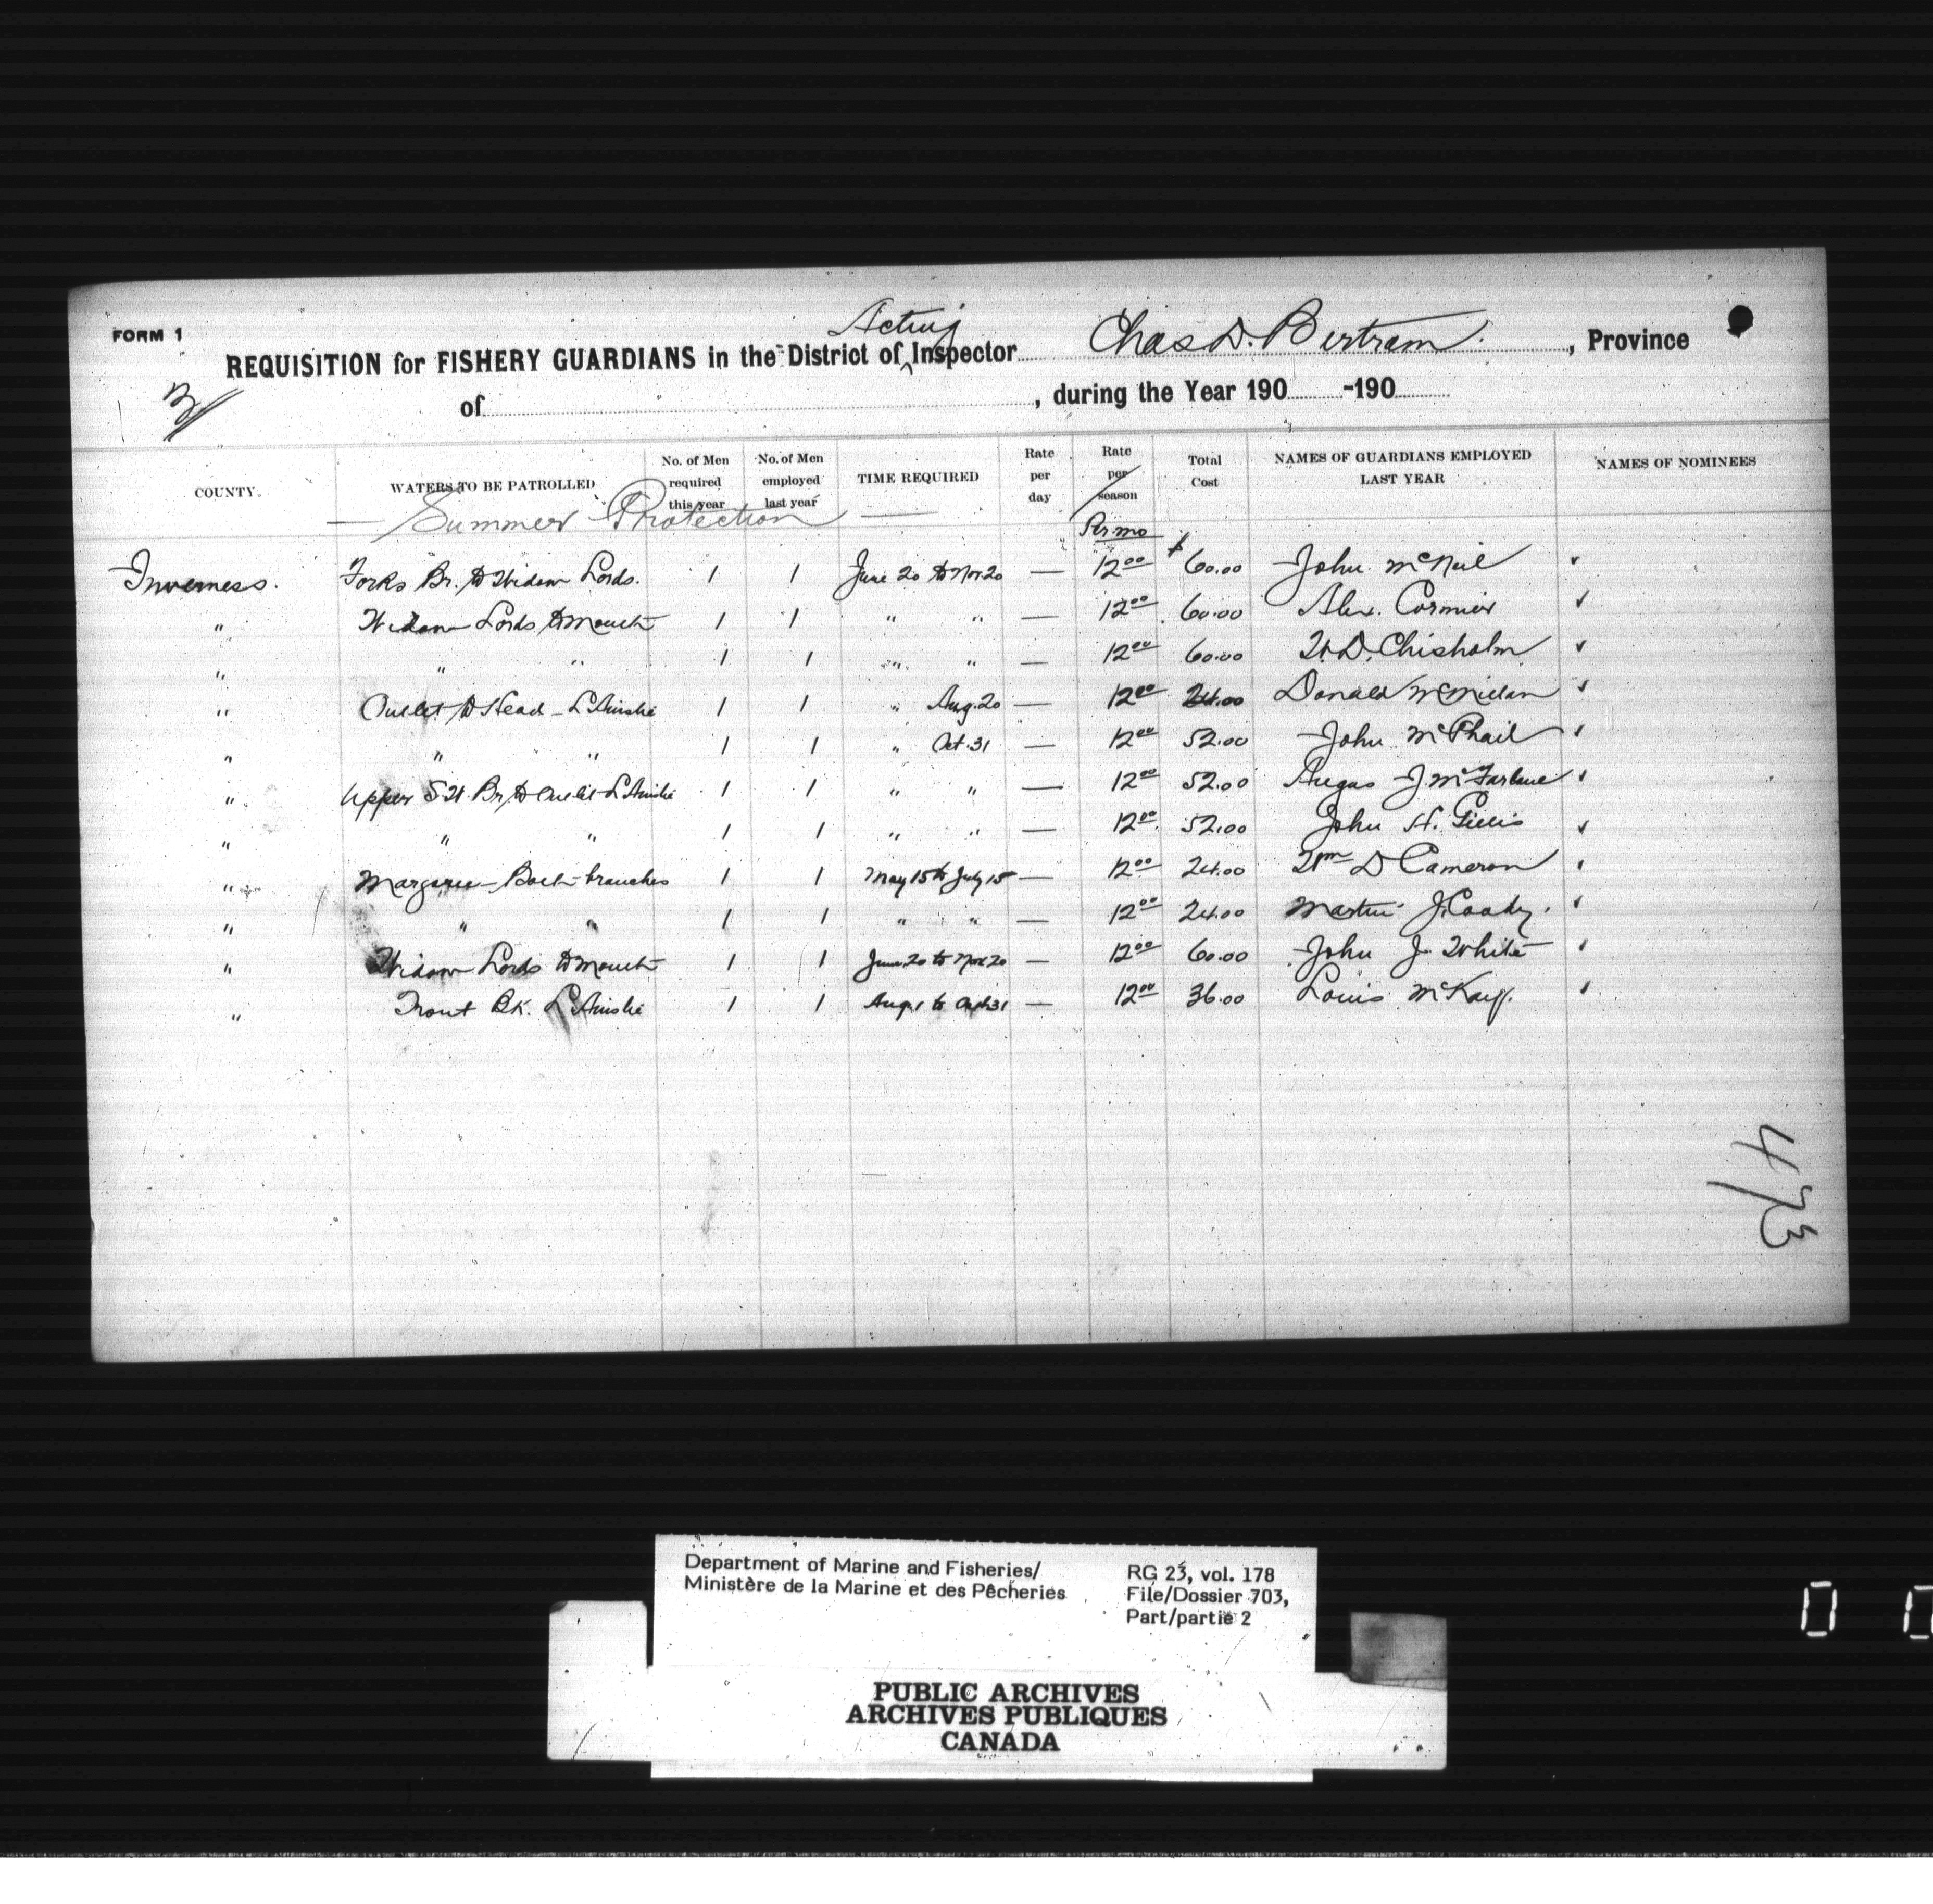 FORM 1
Acting
REQUISITION for FISHERY GUARDIANS in the District of ^ Inspector Chas D. Bertram. , Province
3 of , during the Year 190 -190
COUNTY. WATERS TO BE PATROLLED No. of Men required this year No. of Men employed last year TIME REQUIRED Rate per day Rate per season Total Cost NAMES OF GUARDIANS EMPLOYED LAST YEAR NAMES OF NOMINEES
— Summer Protection —
Per mo
Inverness. Forks Br. to Widow Lords. 1 1 June 20 to Nov. 20 — 12 00 $ 60.00 John McNeil ✓
" Widow Lords to mouth 1 1 " " — 12 00 60.00 Alex. Cormier ✓
" " " 1 1 " " — 12 00 60.00 W. D. Chisholm ✓
" Outlet to Head - L'Ainslie 1 1 " Aug. 20 — 12 00 24.00 Donald McMillan ✓
" " " 1 1 " Oct. 31 — 12 00 52.00 John McPhail ✓
" Upper S.W. Br. to Outlet L'Ainslie 1 1 " " — 12 00 52.00 Angus J. McFarlane ✓
" " " 1 1 " " — 12 00 52.00 John H. Gillis ✓
" Margaree - Both branches 1 1 May 15 to July 15 — 12 00 24.00 Wm D Cameron ✓
" " " 1 1 " " — 12 00 24.00 Martin J. Coady. ✓
" Widow Lords to mouth 1 1 June 20 to Nov 20 — 12 00 60.00 John J White ✓
" Trout Bk. L'Ainslie 1 1 Aug. 1 to Oct 31 — 12 00 36.00 Louis McKay. ✓
473
Department of Marine and Fisheries/
Ministère de la Marine et des Pêcheries
RG 23, vol. 178
File/Dossier 703,
Part/partie 2
PUBLIC ARCHIVES
ARCHIVES PUBLIQUES
CANADA
0 0